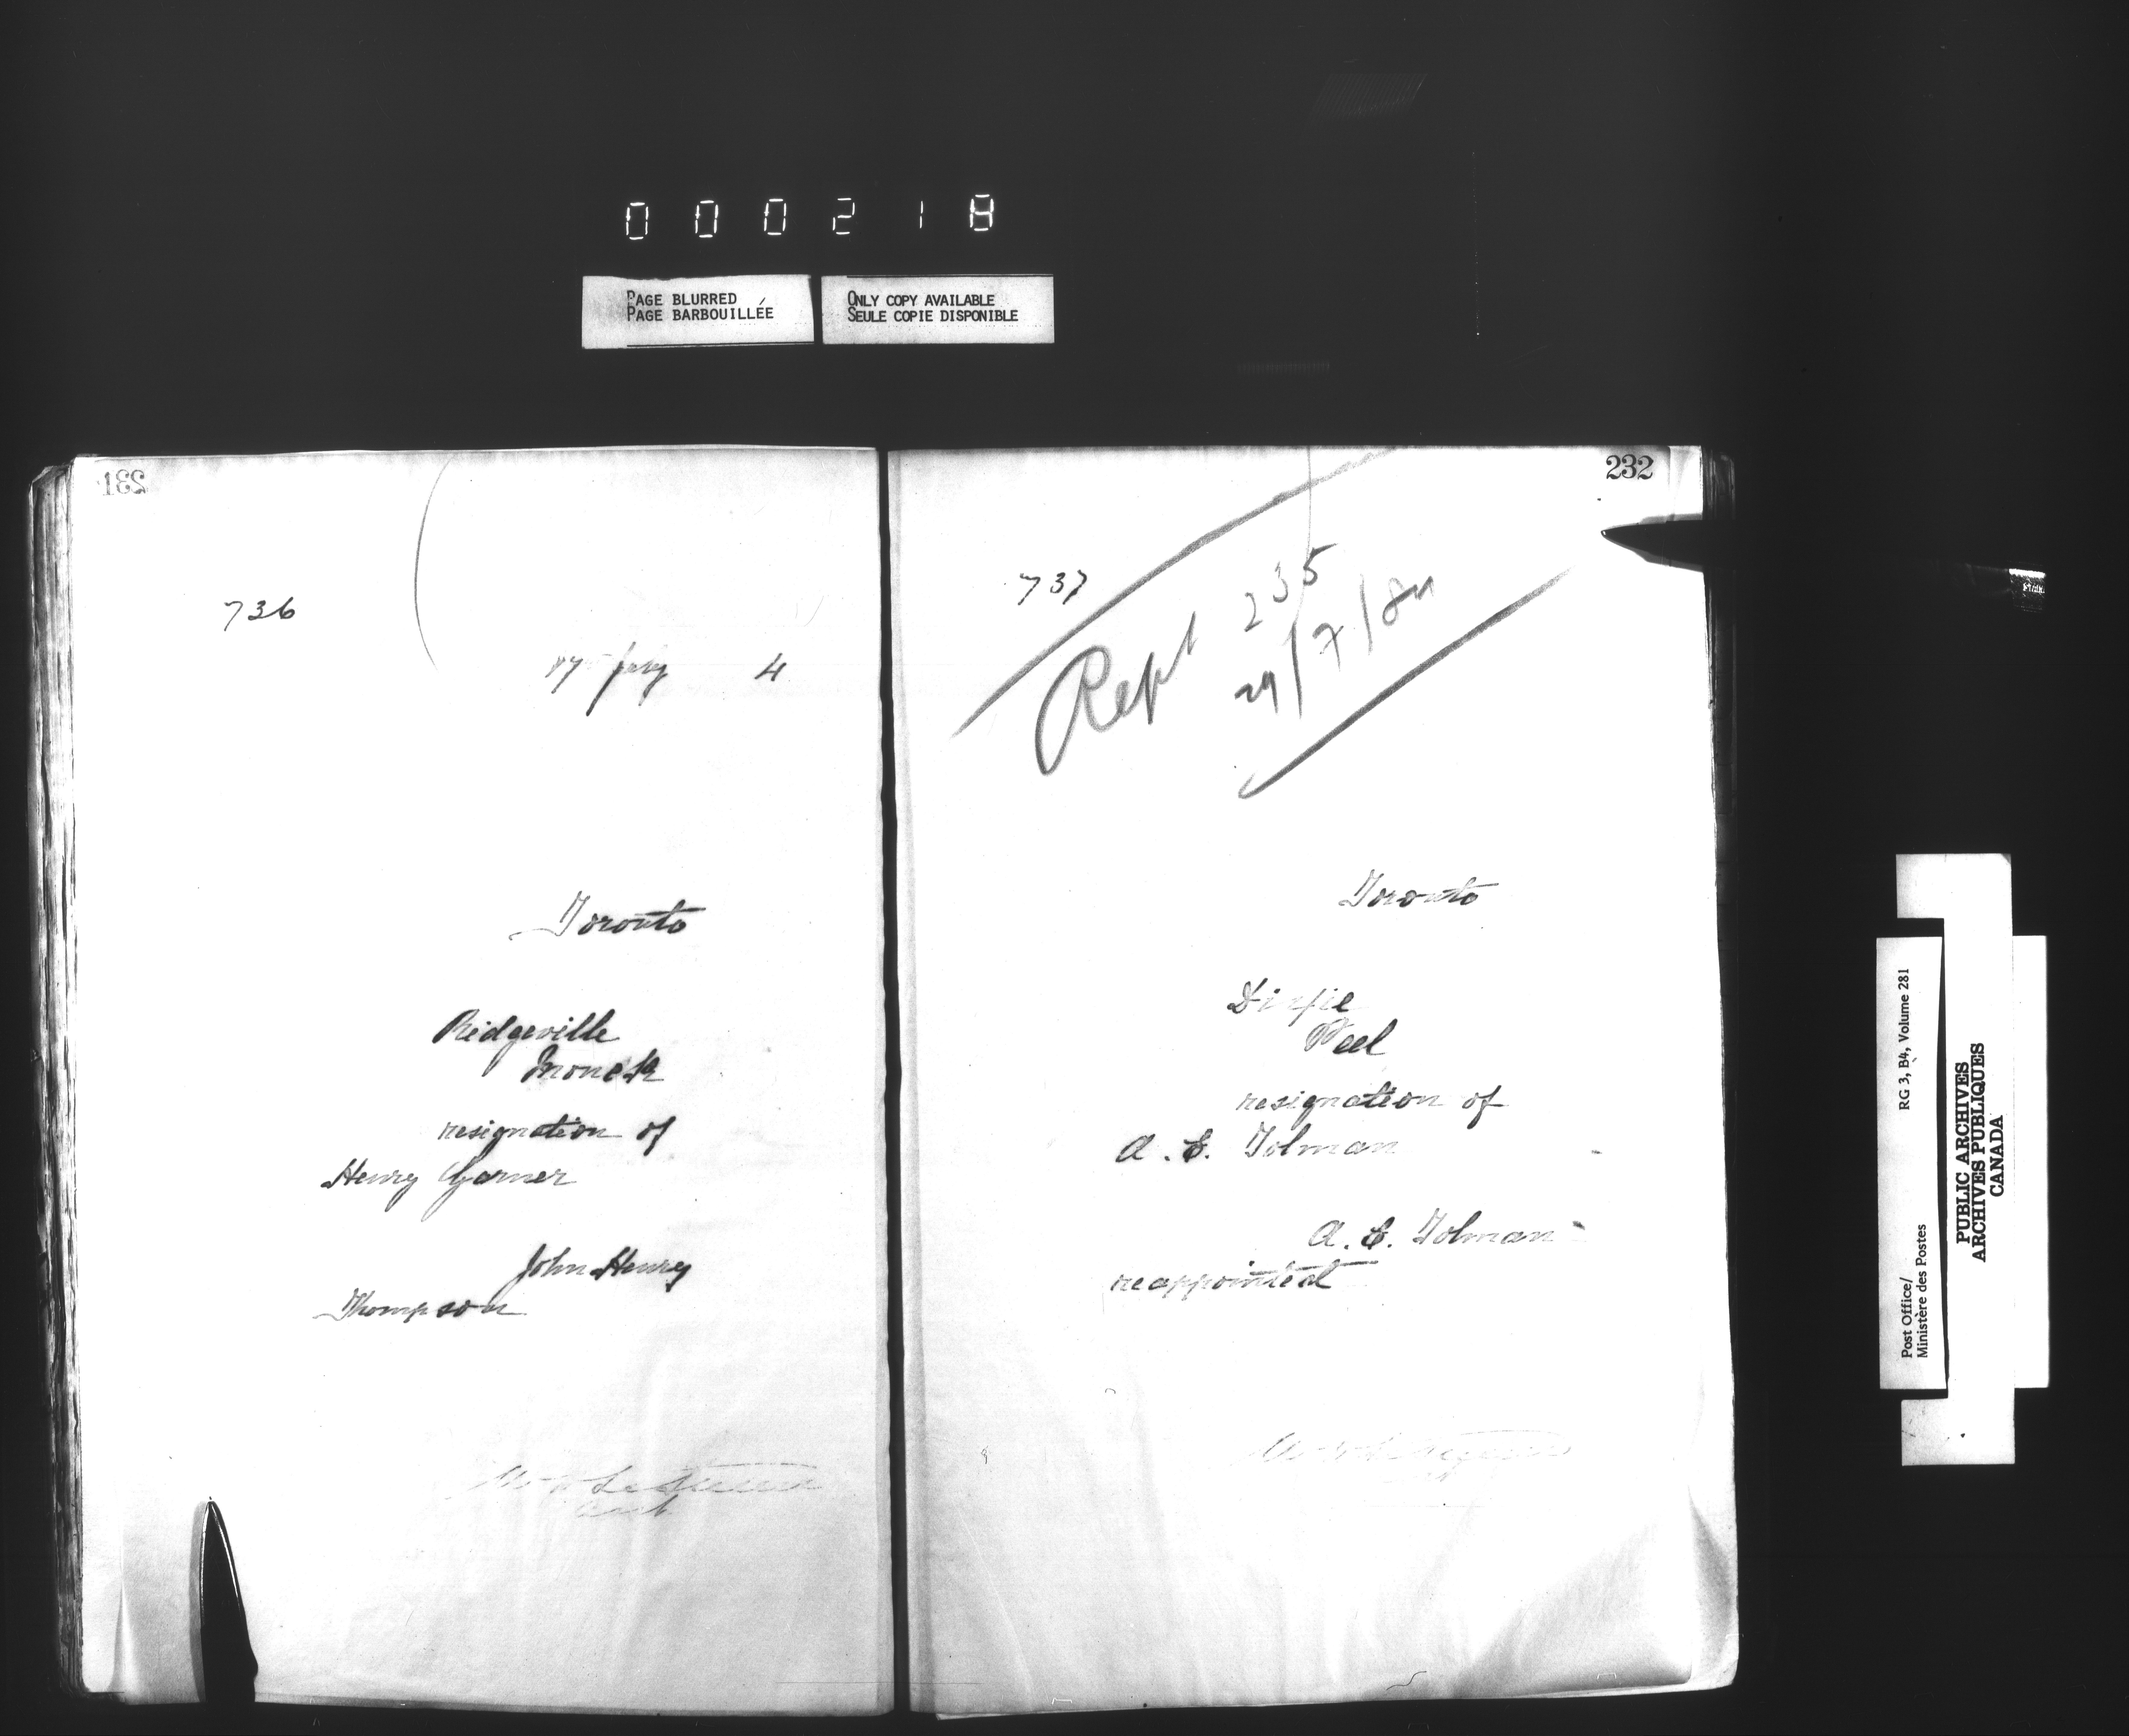 000218
PAGE BLURRED
PAGE BARBOUILLÉE
ONLY COPY AVAILABLE
SEULE COPIE DISPONIBLE
231
736
17 July 4
Toronto
Ridgeville
Monck
resignation of
Henry Garner
John Henry
Thompson
232
737
Rept 235
29/7/84
Toronto
Peel
resignation of
A. E. Tolman
A. E. Tolman
reappointed
Post Office/
Ministère des Postes
RG 3, B4, Volume 281
PUBLIC ARCHIVES
ARCHIVES PUBLIQUES
CANADA